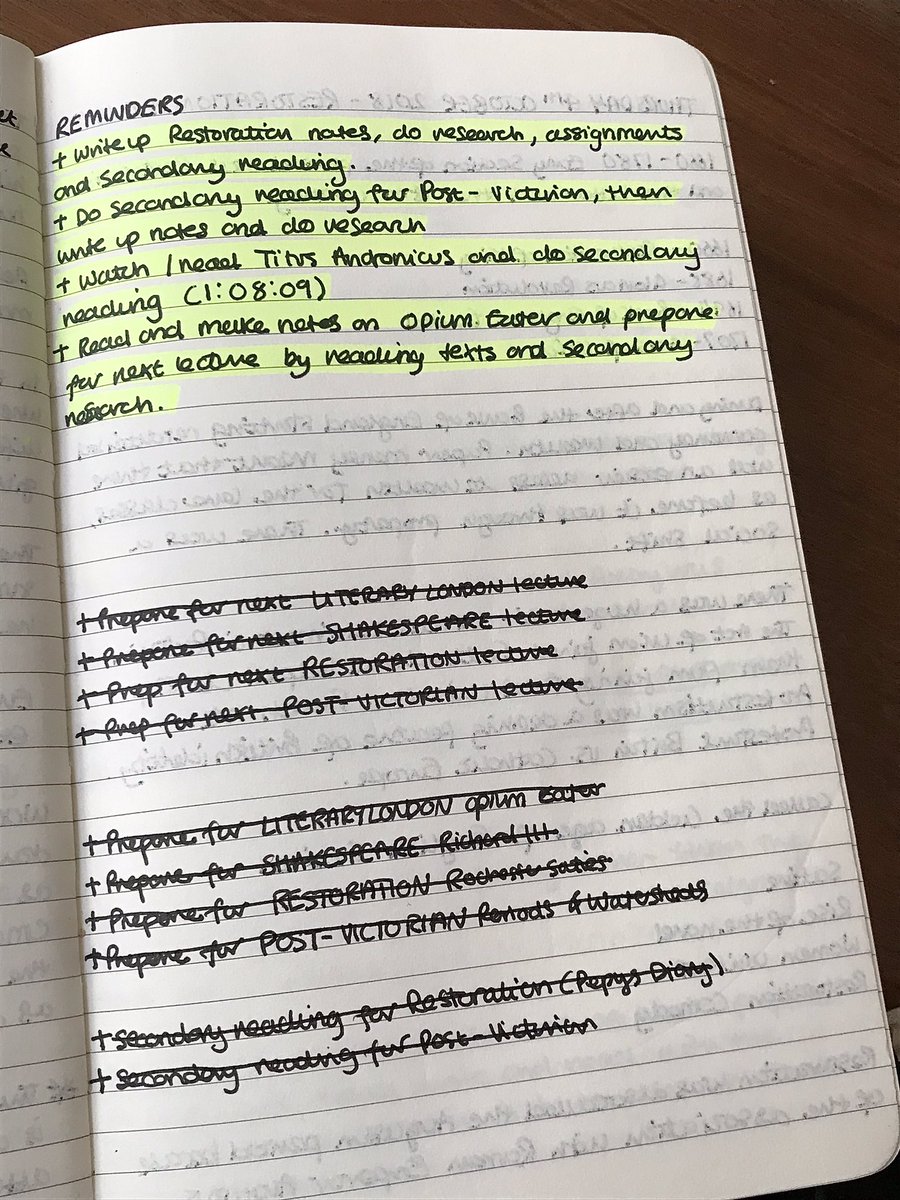 REMINDERS
+ Write up Restoration notes, do research, assignments
and secondary reading.
+ Do secondary reading for Post-Victorian, then
write up notes and do research
+ Watch / read Titus Andronicus and do secondary
reading (1:08:09)
+ Read and make notes on Opium Eater and prepare
for next lecture by reading texts and secondary
research.
+ Prepare for next LITERARY LONDON lecture
+ Prepare for next SHAKESPEARE lecture
+ Prep for next RESTORATION lecture
+ Prep for next POST-VICTORIAN lecture
+ Prepare for LITERARY LONDON Opium Eater
+ Prepare for SHAKESPEARE Richard III
+ Prepare for RESTORATION Rochester Satires
+ Prepare for POST-VICTORIAN Periods & Watersheds
+ Secondary reading for Restoration (Pepys Diary)
+ Secondary reading for Post-Victorian